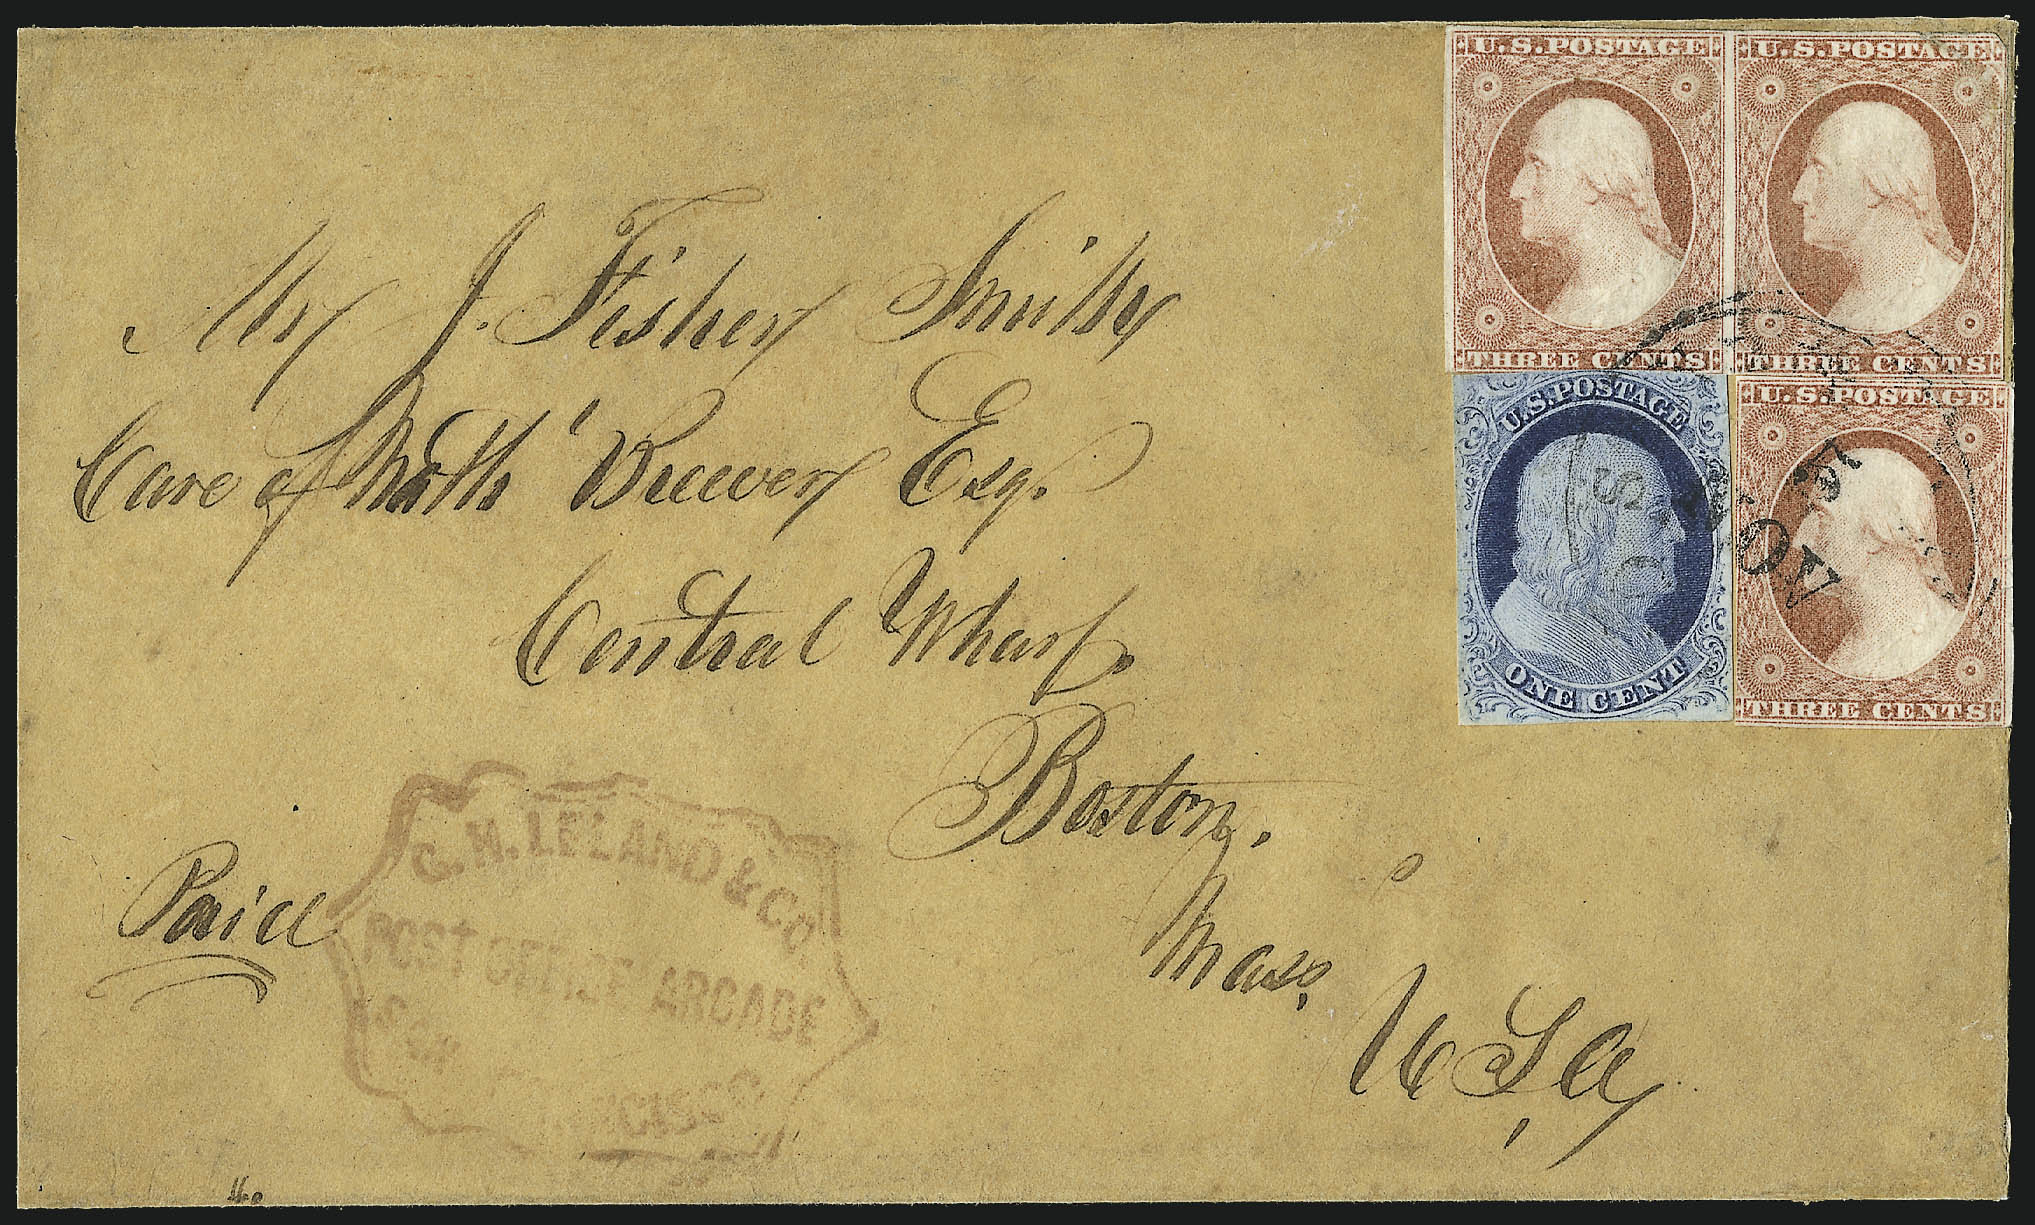 U.S.POSTAGE U.S.POSTAGE
THREE CENTS THREE CENTS
U.S.POSTAGE U.S.POSTAGE
ONE CENT THREE CENTS
Mr J. Fisher Smith
Care of Noth' Brewer Esq.
Central Wharf.
Boston.
Mass.
U S A
Paid
C.H.LELAND & CO
POST OFFICE ARCADE
SAN FRANCISCO